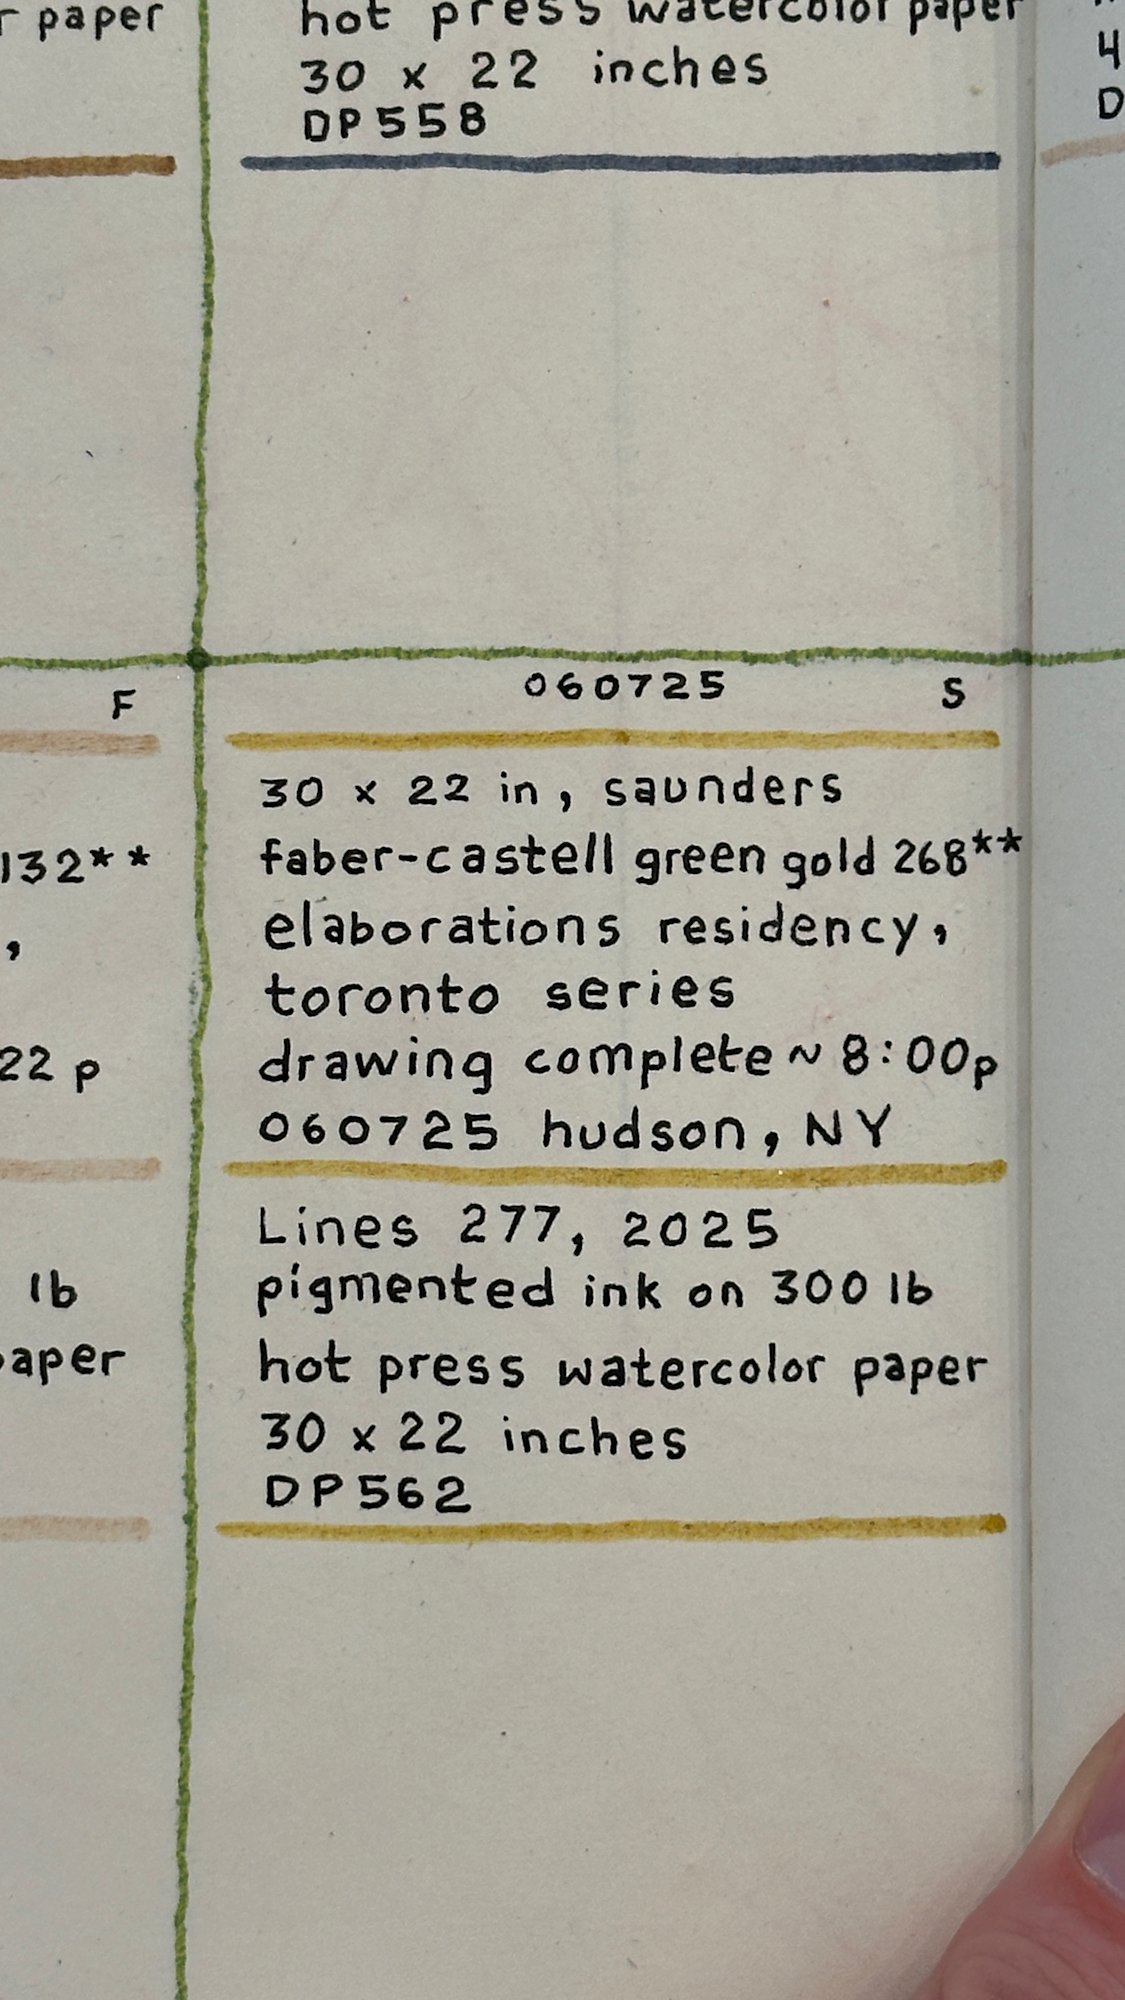 paper
hot press watercolor paper
30 x 22 inches
DP558
4
D
F
132**
,
22 p
lb
paper
060725 S
30 x 22 in, saunders
faber-castell green gold 268**
elaborations residency,
toronto series
drawing complete ~ 8:00p
060725 hudson, NY
Lines 277, 2025
pigmented ink on 300 lb
hot press watercolor paper
30 x 22 inches
DP562